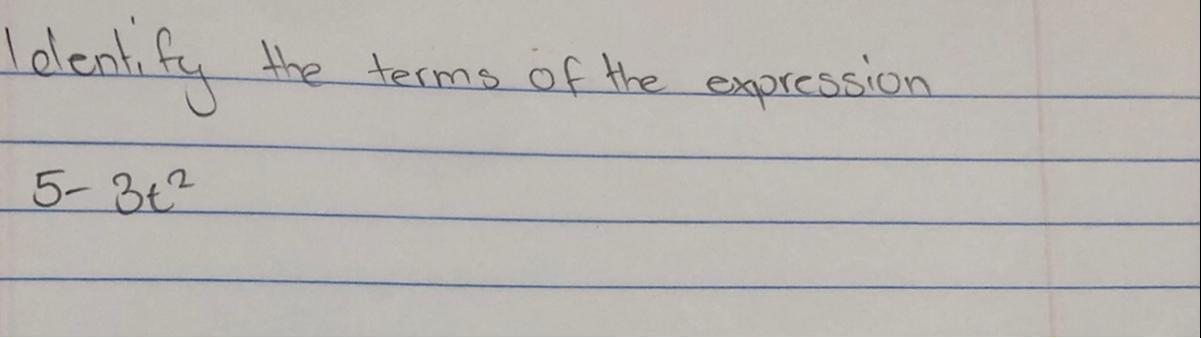 Identify the terms of the expression
5- 3t²